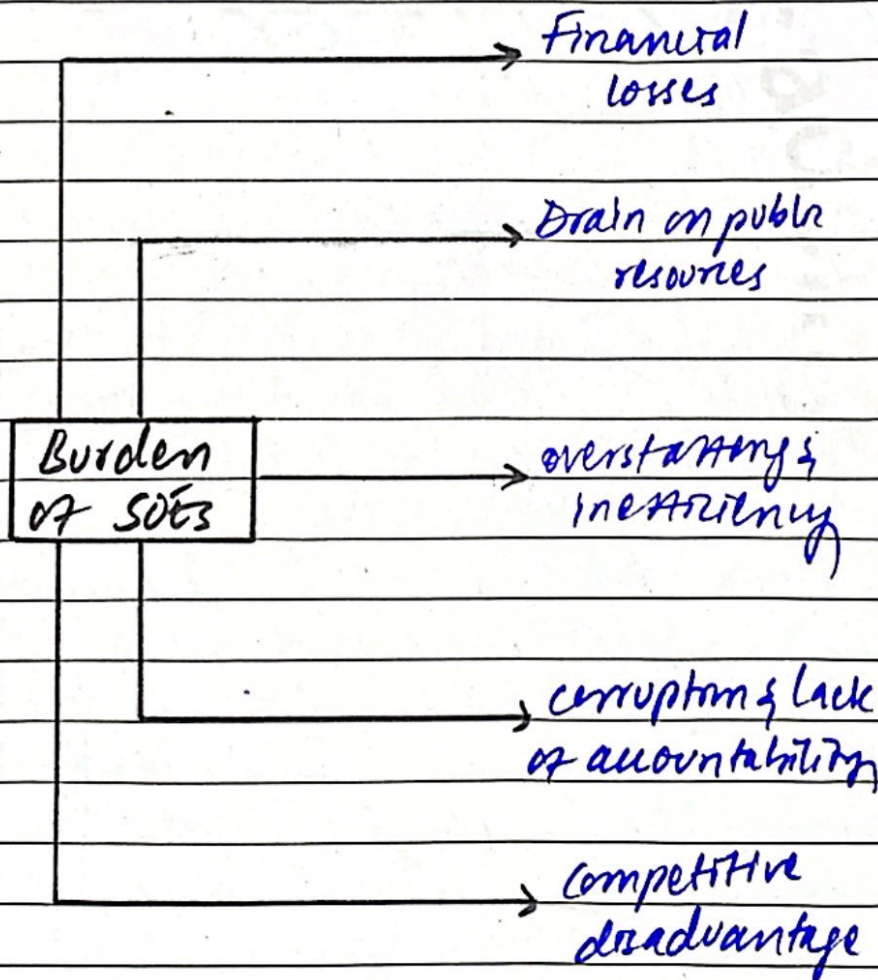 Financial
losses
Drain on public
resources
Burden
of SOEs
overstaffing &
inefficiency
corruption & lack
of accountability
competitive
disadvantage